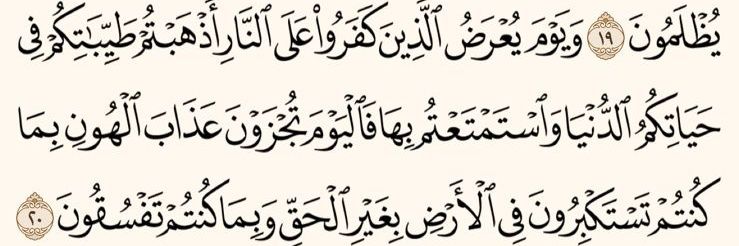 يُظۡلَمُونَ ١٩ وَيَوۡمَ يُعۡرَضُ ٱلَّذِينَ كَفَرُواْ عَلَى ٱلنَّارِ أَذۡهَبۡتُمۡ طَيِّبَٰتِكُمۡ فِي
حَيَاتِكُمُ ٱلدُّنۡيَا وَٱسۡتَمۡتَعۡتُم بِهَا فَٱلۡيَوۡمَ تُجۡزَوۡنَ عَذَابَ ٱلۡهُونِ بِمَا
كُنتُمۡ تَسۡتَكۡبِرُونَ فِي ٱلۡأَرۡضِ بِغَيۡرِ ٱلۡحَقِّ وَبِمَا كُنتُمۡ تَفۡسُقُونَ ٢٠